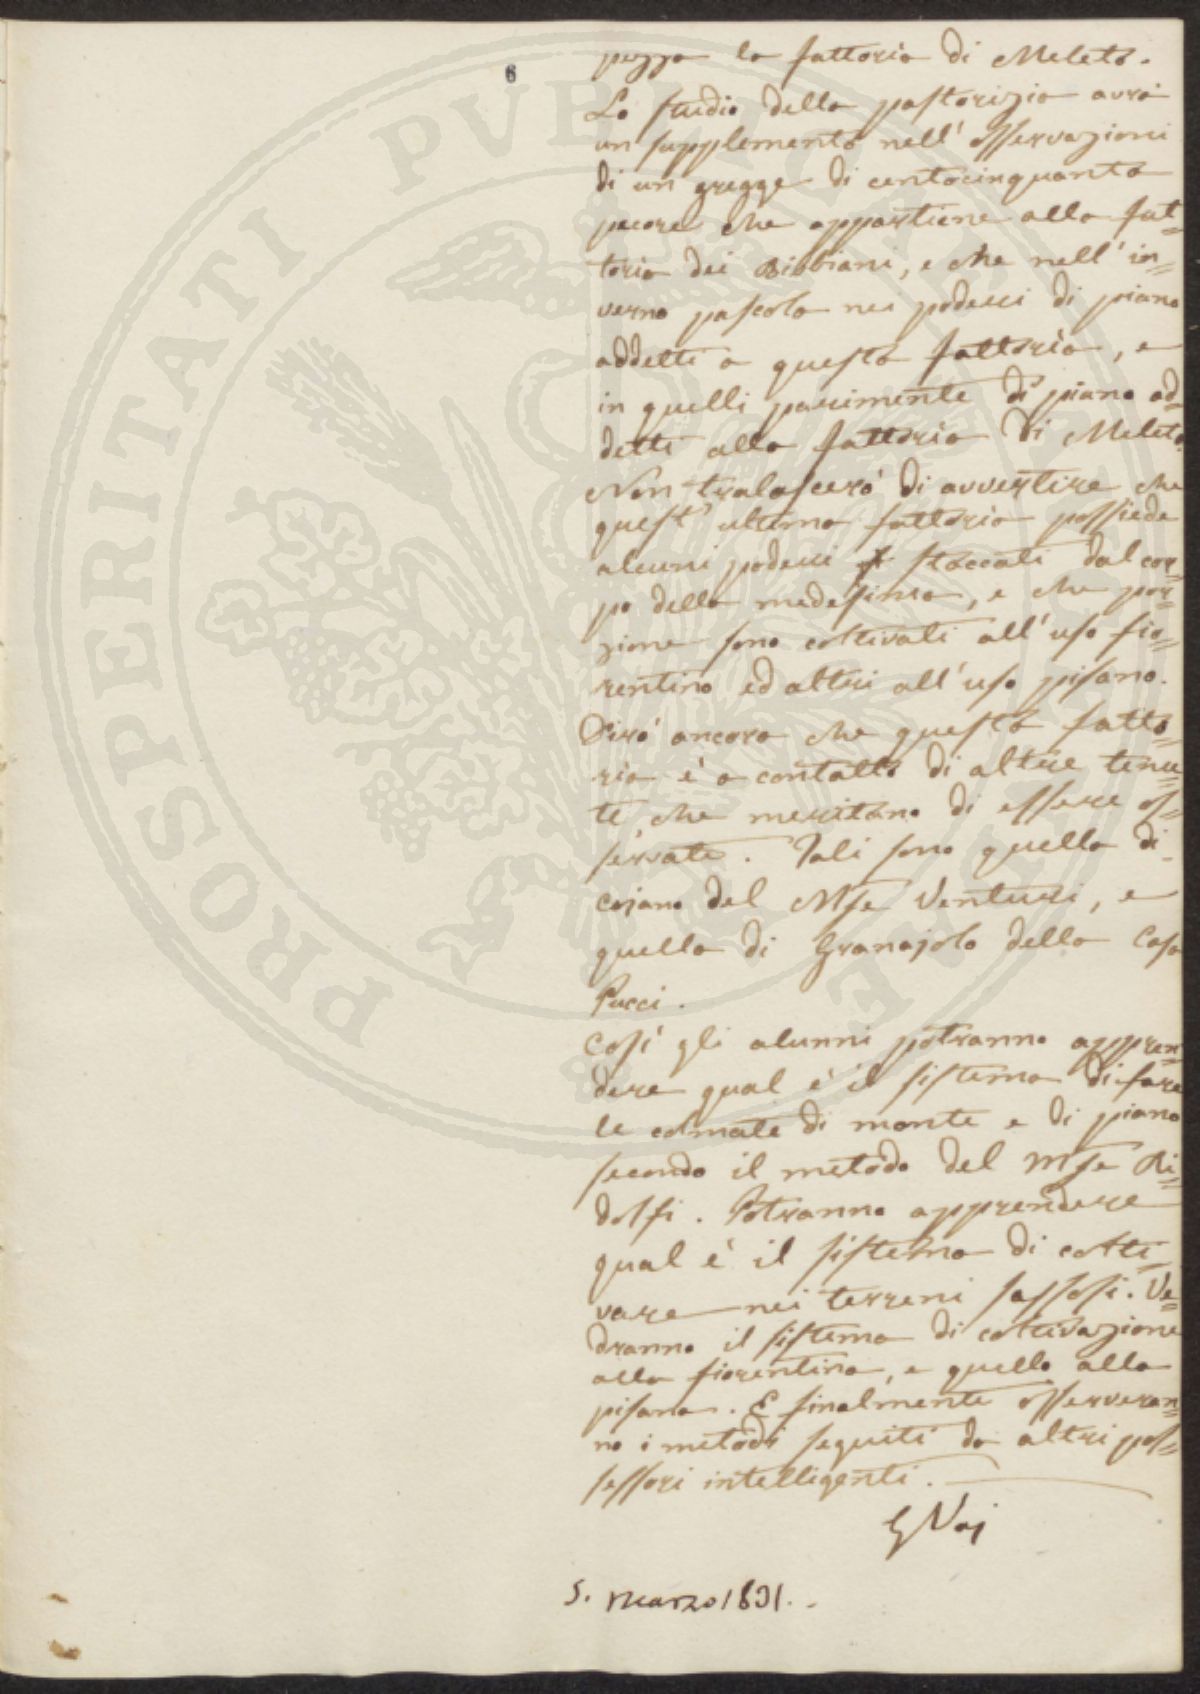 6
pezza la fattoria di Meleto.
Lo studio della pastorizia avrà
un supplemento nell'osservazioni
di un gregge di centocinquanta
pecore che appartiene alla fat=
toria dei Bibbiani, e che nell'in=
verno pascola nei poderi di piano
addetti a questa fattoria, e
in quelli parimente di piano ad=
detti alla fattoria di Meleto.
Non tralascerò di avvertire che
quest'ultima fattoria possiede
alcuni poderi staccati dal cor=
po della medesima, e che por=
zione sono coltivati all'uso fio=
rentino ed altri all'uso pisano.
Dirò ancora che questa fatto=
ria è a contatto di altre tenu=
te, che meritano di essere os=
servate. Tali sono quella di
cojano del Mse Venturi, e
quella di Granajolo della Casa
Pucci.
Così gli alunni potranno appren=
dere qual è il sistema di fare
le colmate di monte e di piano
secondo il metodo del Mse Ri=
dolfi. Potranno apprendere
qual è il sistema di colti=
vare nei terreni sassosi. Ve=
dranno il sistema di coltivazione
alla fiorentina, e quello alla
pisana. E finalmente osserveran=
no i metodi seguiti da altri pos=
sessori intelligenti.
5. Marzo 1831.
PROSPERITATI PUBLICAE